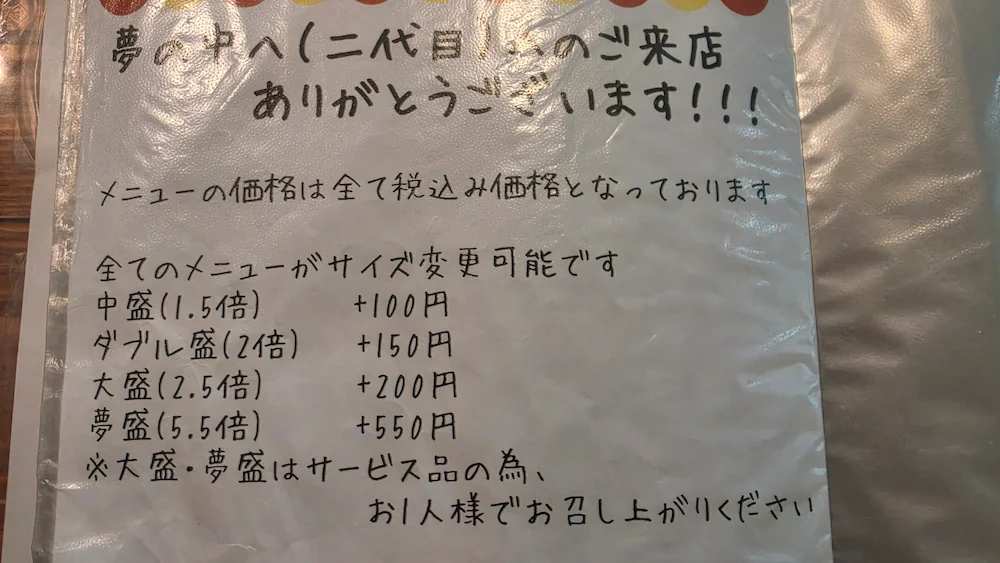 夢の中へ(二代目)へのご来店
ありがとうございます!!!
メニューの価格は全て税込み価格となっております
全てのメニューがサイズ変更可能です
中盛(1.5倍) +100円
ダブル盛(2倍) +150円
大盛(2.5倍) +200円
夢盛(5.5倍) +550円
※大盛・夢盛はサービス品の為、
お1人様でお召し上がりください